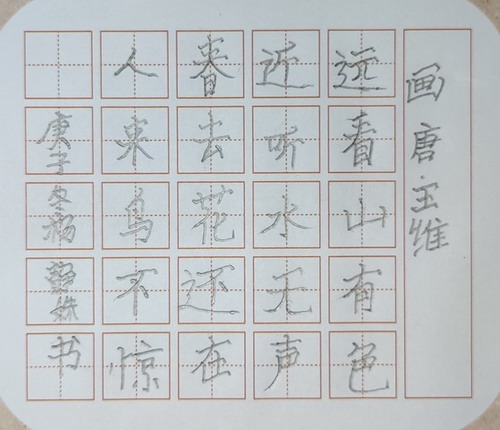 画 唐·王维
远看山有色
近听水无声
春去花还在
人来鸟不惊
庚子冬 书